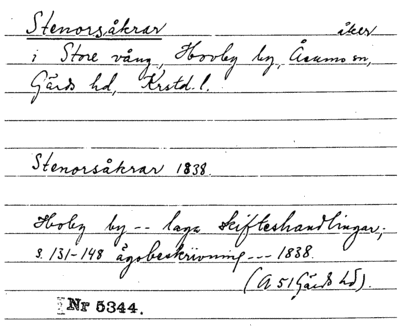 Stenorsåkrar åker
i Store vång, Hovby by, Åsumo sn,
Gärds hd, Krstd. l.
Stenorsåkrar 1838.
Hovby by -- laga skifteshandlingar,
s. 131-148 ägobeskrivning --- 1838.
(A 51 Gärds hd).
Nr 5344.